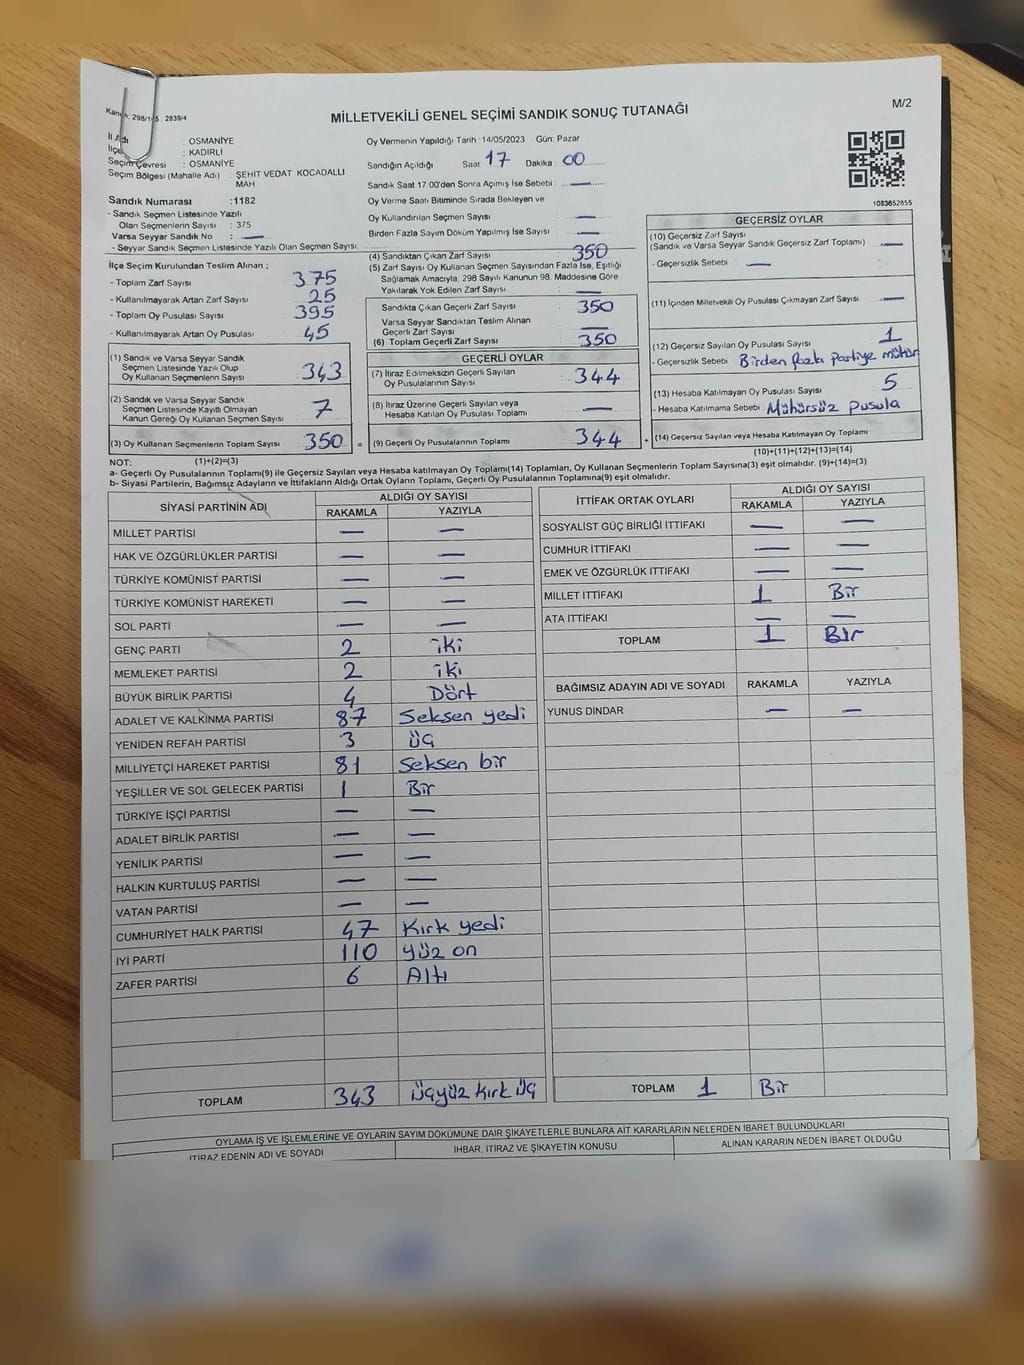 Kanun 298/105, 2839/4
MİLLETVEKİLİ GENEL SEÇİMİ SANDIK SONUÇ TUTANAĞI
M/2
İl Adı : OSMANİYE
İlçe : KADİRLİ
Seçim Çevresi : OSMANİYE
Seçim Bölgesi (Mahalle Adı) : ŞEHİT VEDAT KOCADALLI
MAH
Sandık Numarası :1182
- Sandık Seçmen Listesinde Yazılı
Olan Seçmenlerin Sayısı : 375
Varsa Seyyar Sandık No : —
- Seyyar Sandık Seçmen Listesinde Yazılı Olan Seçmen Sayısı:
Oy Vermenin Yapıldığı Tarih : 14/05/2023 Gün: Pazar
Sandığın Açıldığı Saat 17 Dakika : 00
Sandık Saat 17:00'den Sonra Açılmış İse Sebebi : —
Oy Verme Saati Bitiminde Sırada Bekleyen ve
Oy Kullandırılan Seçmen Sayısı —
Birden Fazla Sayım Döküm Yapılmış İse Sayısı : —
1083652855
İlçe Seçim Kurulundan Teslim Alınan ;
- Toplam Zarf Sayısı 375
- Kullanılmayarak Artan Zarf Sayısı 25
- Toplam Oy Pusulası Sayısı 395
- Kullanılmayarak Artan Oy Pusulası 45
(1) Sandık ve Varsa Seyyar Sandık
Seçmen Listesinde Yazılı Olup
Oy Kullanan Seçmenlerin Sayısı 343
(2) Sandık ve Varsa Seyyar Sandık
Seçmen Listesinde Kayıtlı Olmayan
Kanun Gereği Oy Kullanan Seçmen Sayısı 7
(3) Oy Kullanan Seçmenlerin Toplam Sayısı 350 =
(4) Sandıktan Çıkan Zarf Sayısı 350
(5) Zarf Sayısı Oy Kullanan Seçmen Sayısından Fazla İse, Eşitliği
Sağlamak Amacıyla, 298 Sayılı Kanunun 98. Maddesine Göre
Yakılarak Yok Edilen Zarf Sayısı : —
Sandıkta Çıkan Geçerli Zarf Sayısı 350
Varsa Seyyar Sandıktan Teslim Alınan
Geçerli Zarf Sayısı —
(6) Toplam Geçerli Zarf Sayısı 350
GEÇERLİ OYLAR
(7) İtiraz Edilmeksizin Geçerli Sayılan
Oy Pusulalarının Sayısı 344
(8) İtiraz Üzerine Geçerli Sayılan veya
Hesaba Katılan Oy Pusulası Toplamı —
(9) Geçerli Oy Pusulalarının Toplamı 344 +
GEÇERSİZ OYLAR
(10) Geçersiz Zarf Sayısı
(Sandık ve Varsa Seyyar Sandık Geçersiz Zarf Toplamı) —
- Geçersizlik Sebebi —
(11) İçinden Milletvekili Oy Pusulası Çıkmayan Zarf Sayısı —
(12) Geçersiz Sayılan Oy Pusulası Sayısı 1
- Geçersizlik Sebebi Birden fazla partiye mühür
(13) Hesaba Katılmayan Oy Pusulası Sayısı 5
- Hesaba Katılmama Sebebi Mühürsüz pusula
(14) Geçersiz Sayılan veya Hesaba Katılmayan Oy Toplamı
NOT: (1)+(2)=(3)
(10)+(11)+(12)+(13)=(14)
a- Geçerli Oy Pusulalarının Toplamı(9) ile Geçersiz Sayılan veya Hesaba katılmayan Oy Toplamı(14) Toplamları, Oy Kullanan Seçmenlerin Toplam Sayısına(3) eşit olmalıdır. (9)+(14)=(3)
b- Siyasi Partilerin, Bağımsız Adayların ve İttifakların Aldığı Ortak Oyların Toplamı, Geçerli Oy Pusulalarının Toplamına(9) eşit olmalıdır.
SİYASİ PARTİNİN ADI
ALDIĞI OY SAYISI
RAKAMLA YAZIYLA
MİLLET PARTİSİ — —
HAK VE ÖZGÜRLÜKLER PARTİSİ — —
TÜRKİYE KOMÜNİST PARTİSİ — —
TÜRKİYE KOMÜNİST HAREKETİ — —
SOL PARTİ — —
GENÇ PARTİ 2 iki
MEMLEKET PARTİSİ 2 iki
BÜYÜK BİRLİK PARTİSİ 4 Dört
ADALET VE KALKINMA PARTİSİ 87 Seksen yedi
YENİDEN REFAH PARTİSİ 3 üç
MİLLİYETÇİ HAREKET PARTİSİ 81 Seksen bir
YEŞİLLER VE SOL GELECEK PARTİSİ 1 Bir
TÜRKİYE İŞÇİ PARTİSİ — —
ADALET BİRLİK PARTİSİ — —
YENİLİK PARTİSİ — —
HALKIN KURTULUŞ PARTİSİ — —
VATAN PARTİSİ — —
CUMHURİYET HALK PARTİSİ 47 Kırk yedi
İYİ PARTİ 110 yüz on
ZAFER PARTİSİ 6 Altı
TOPLAM 343 üçyüz kırk üç
İTTİFAK ORTAK OYLARI
ALDIĞI OY SAYISI
RAKAMLA YAZIYLA
SOSYALİST GÜÇ BİRLİĞİ İTTİFAKI — —
CUMHUR İTTİFAKI — —
EMEK VE ÖZGÜRLÜK İTTİFAKI — —
MİLLET İTTİFAKI 1 Bir
ATA İTTİFAKI — —
TOPLAM 1 Bir
BAĞIMSIZ ADAYIN ADI VE SOYADI RAKAMLA YAZIYLA
YUNUS DINDAR — —
TOPLAM 1 Bir
OYLAMA İŞ VE İŞLEMLERİNE VE OYLARIN SAYIM DÖKÜMÜNE DAİR ŞİKAYETLERLE BUNLARA AİT KARARLARIN NELERDEN İBARET BULUNDUKLARI
İTİRAZ EDENİN ADI VE SOYADI
İHBAR, İTİRAZ VE ŞİKAYETİN KONUSU
ALINAN KARARIN NEDEN İBARET OLDUĞU